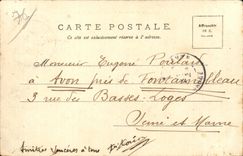 CARTE POSTALE
Ce côté est exclusivement réservé à l'adresse.
Affranchir
Monsieur Eugène
à Avon près de Fontainebleau
3 rue des Basses-Loges
Seine et Marne
Amitiés sincères à tous